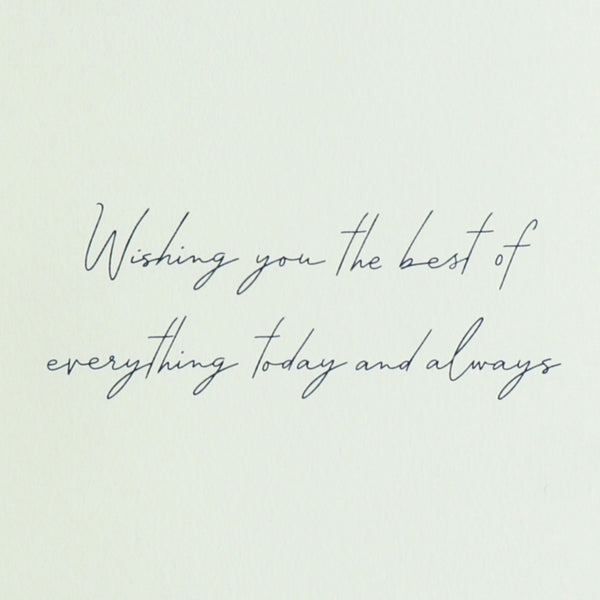 Wishing you the best of
everything today and always